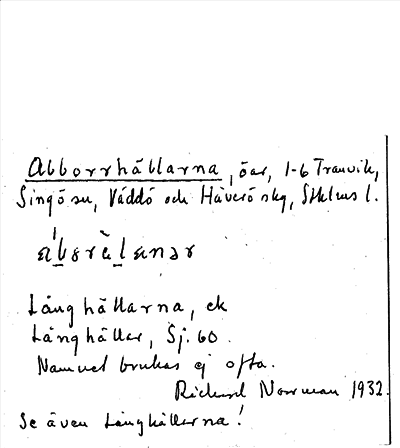 Abborrhällarna, öar, 1-6 Tranvik,
Singö sn, Väddö och Häverö skg, Sthlms l.
Långhällarna, ek
Långhällar, Sj. 60.
Namnet brukas ej ofta.
Rickard Norrman 1932.
Se även Långhällarna!